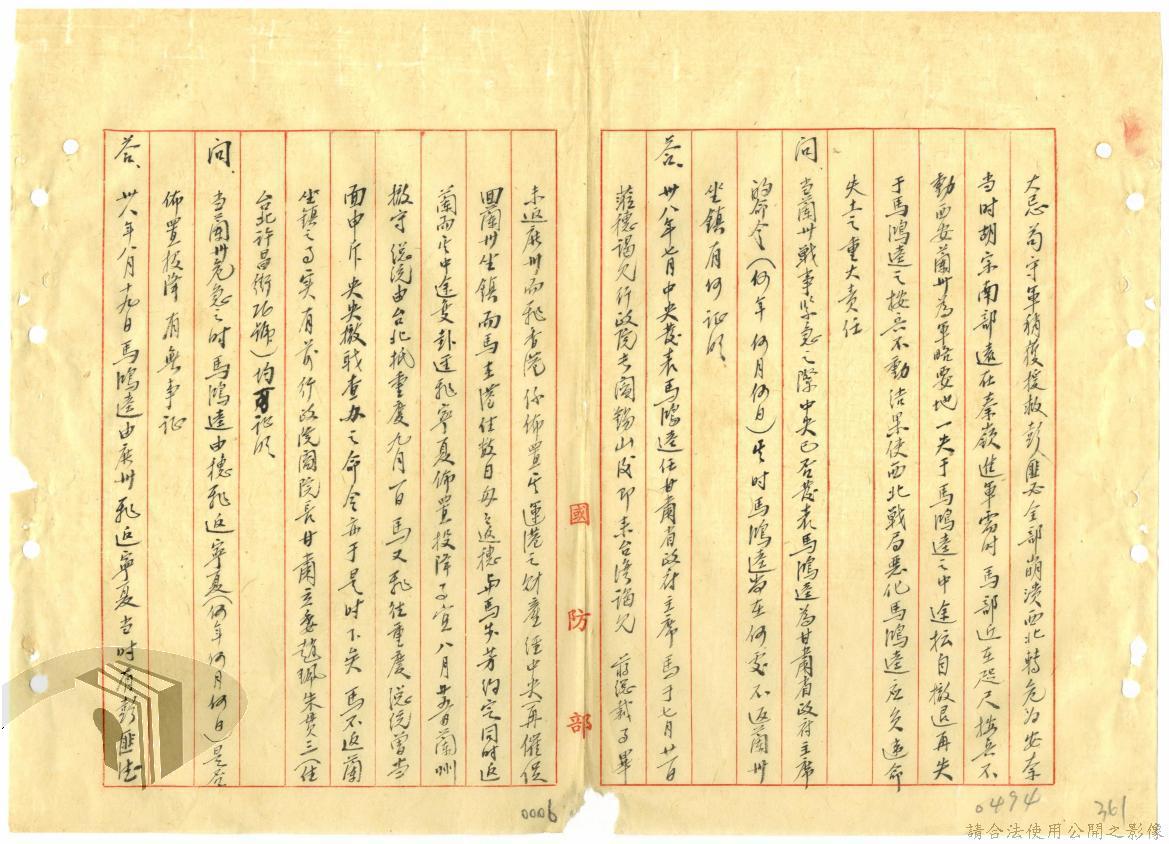 大忌苟守軍稍獲援救彭匪必全部崩潰西北轉危为安奈
当时胡宗南部遠在秦嶺進軍需时馬部近在咫尺按兵不
動西安蘭州為軍略要地一失于馬鴻逵之中途抎自撤退再失
于馬鴻逵之按兵不動结果使西北戰局惡化馬鴻逵应负違命
失土之重大責任
问 当蘭州戰事紧急之際中央已否發表馬鴻逵為甘肅省政府主席
的命令(何年何月何日)其时馬鴻逵啇在何處不返蘭州
坐鎮有何证明
答、卅八年七月中央發表馬鴻逵任甘肅省政府主席馬于七月廿一日
蒞穗謁见行政院长阎錫山後即来台湾謁见 蔣總裁事畢
未返廣州而飛香港係佈置其運港之财產经中央一再催促
回蘭州坐鎮而馬去港住数日每返穗与馬步芳约定同时返
蘭而又中途变卦逕飛寧夏佈置投降事宜八月廿五日蘭州
撤守總統由台北抵重慶九月一日馬又飛往重慶總統曾当
面申斥央央撤職查办之命令亦于是时下矣 馬不返蘭
坐鎮之事实有前行政院阎院长甘肅立委趙珮朱贯三(住
台北許昌街26號)均可证明
问 当蘭州危急之时馬鴻逵由穗飛返寧夏(何年何月何日)是否
佈置投降有無事证
答、卅八年八月十九日馬鴻逵由廣州飛返寧夏当时有彭匪德
國防部
0006
0494
361
請合法使用公開之影像